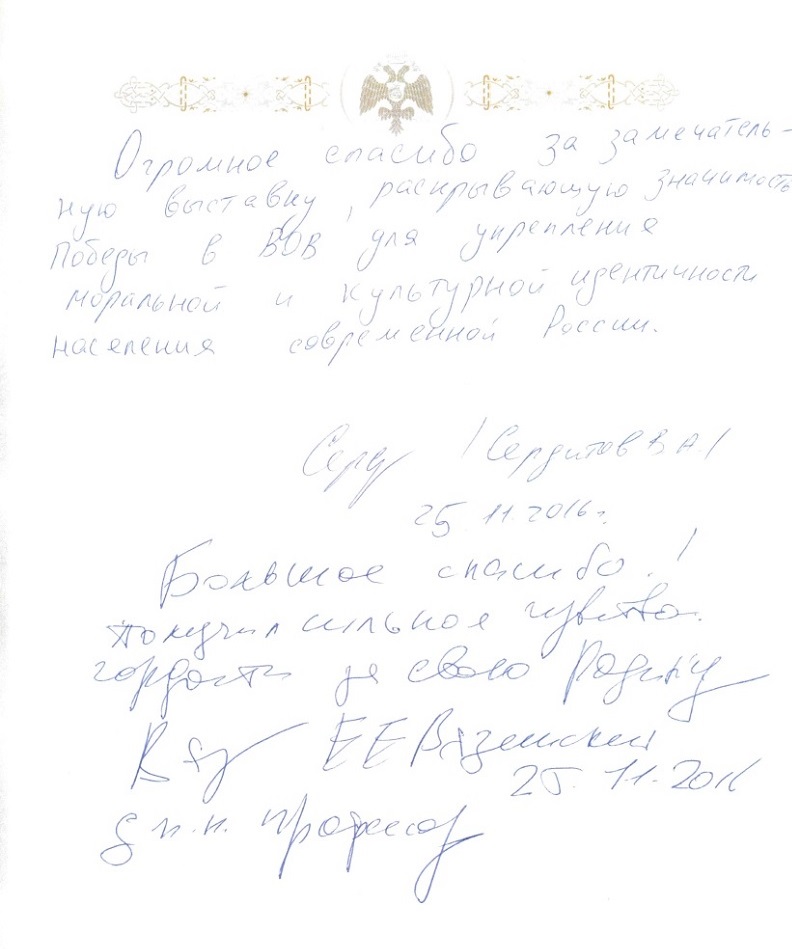 Огромное спасибо за замечатель-
ную выставку, раскрывающую значимость
Победы в ВОВ для укрепления
моральной и культурной идентичности
населения современной России.
Серд /Сердитов В.А./
25.11.2016г.
Большое спасибо!
Получил сильное чувство
гордости за свою Родину
Вяз ЕЕВяземский
25.11.2016
д п.н. профессор